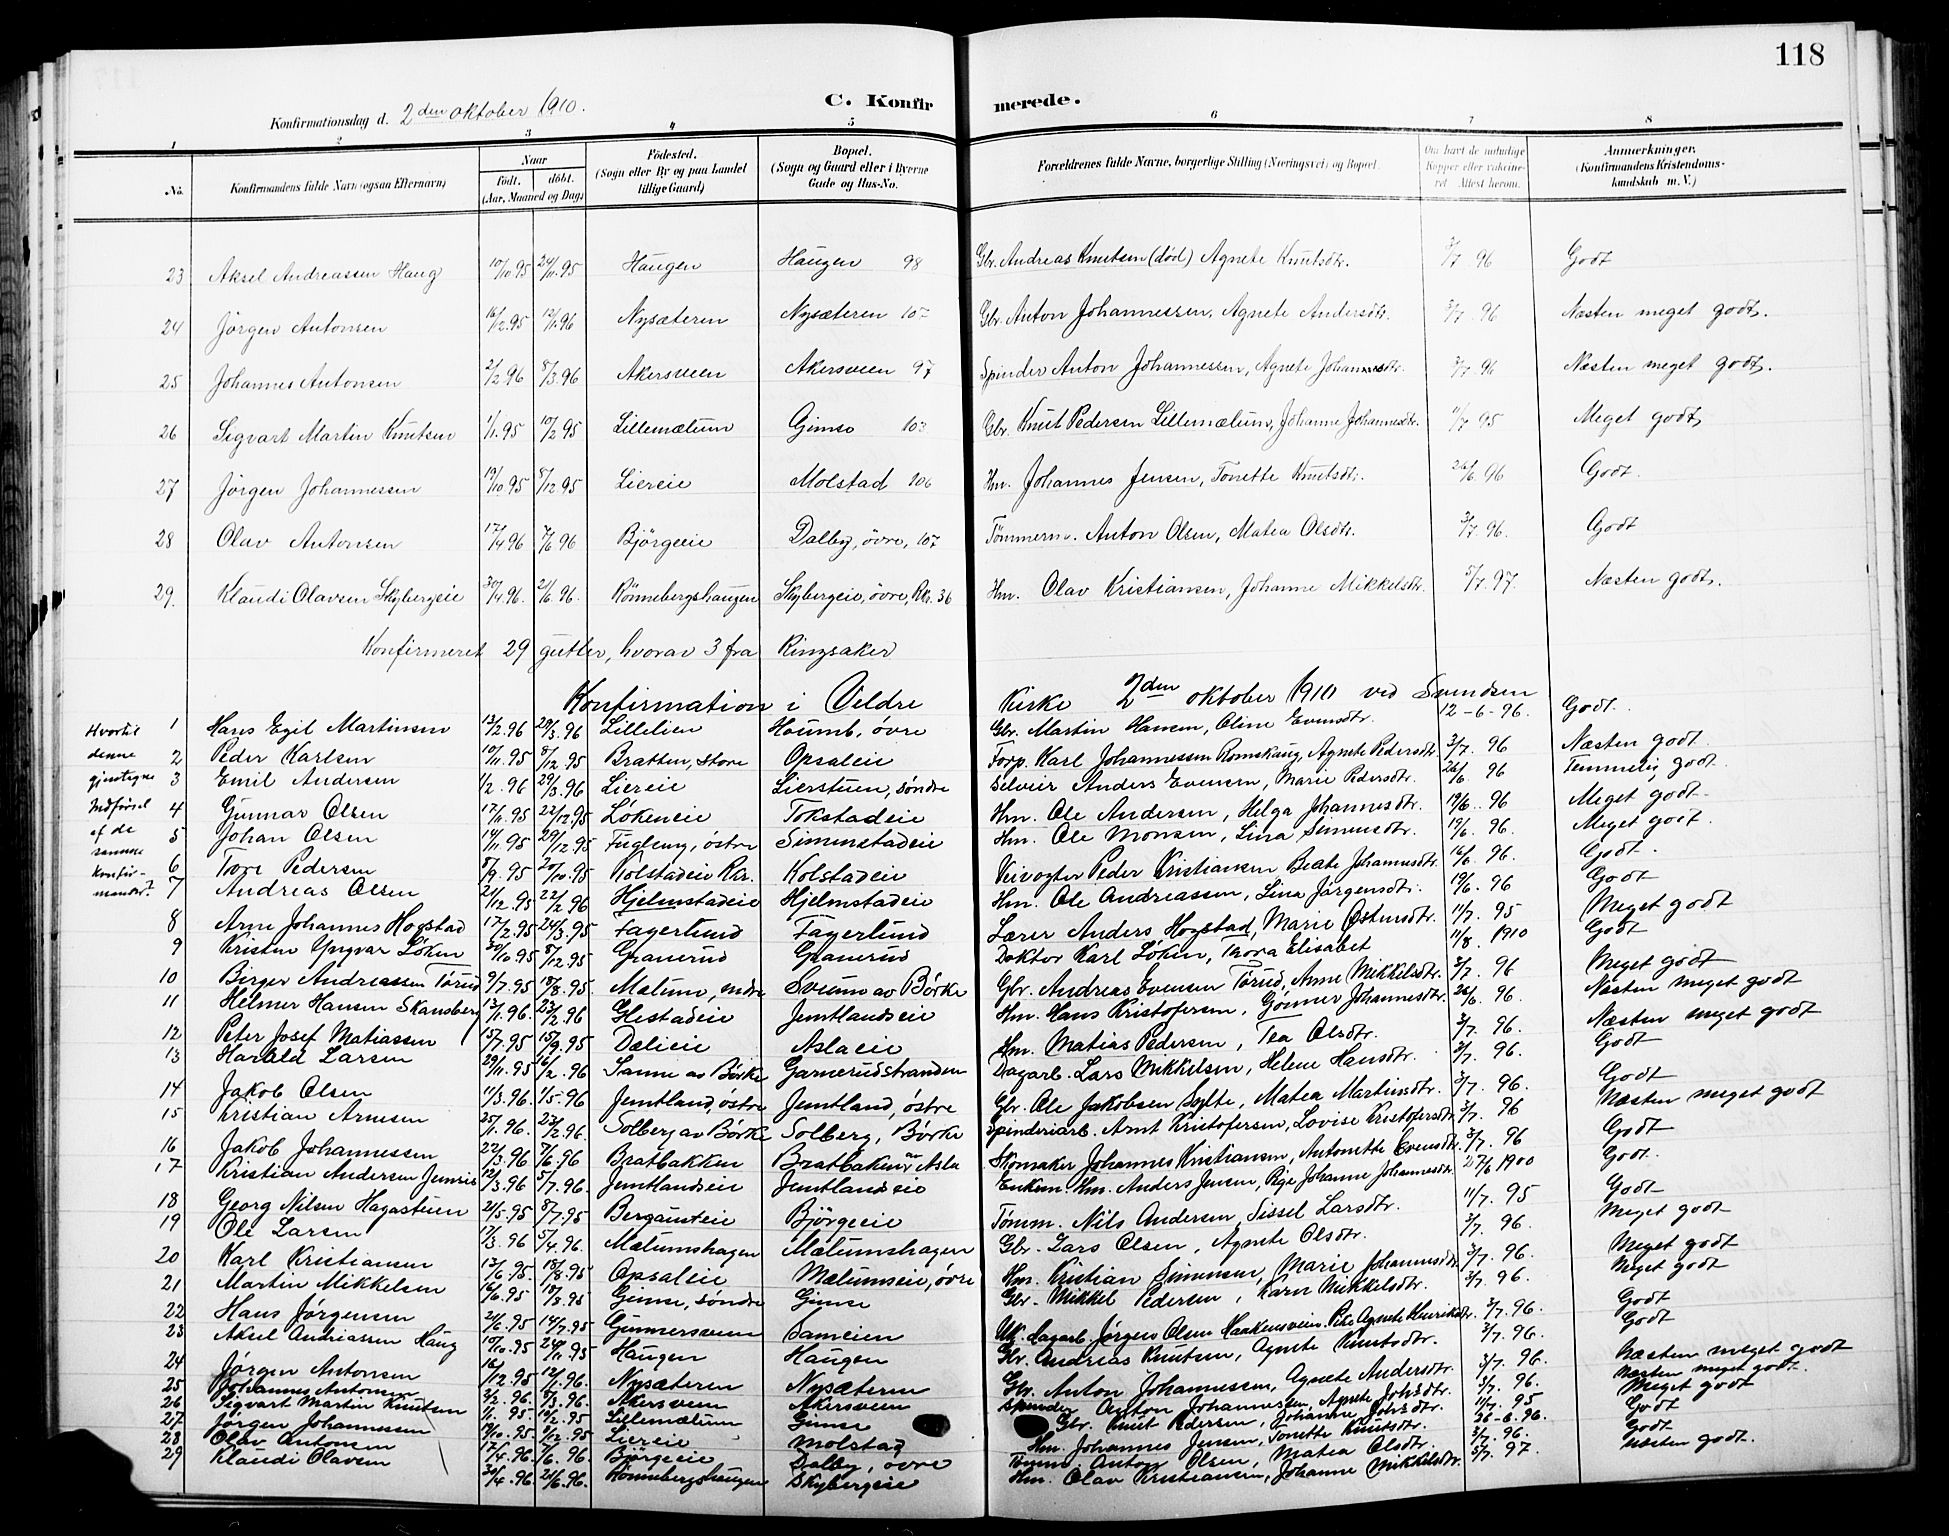 118
C. Konfirmerede.
Konfirmationsdag d. 2den oktober 1910.
1 2 3 4 5 6 7 8
No. Konfirmandens fulde Navn (ogsaa Efternavn) Naar født. døbt. (Aar, Maaned og Dag) Fødested. (Sogn eller By og paa Landet tillige Gaard) Bopæl. (Sogn og Gaard eller i Byerne Gade og Hus-No. Forældrenes fulde Navne, borgerlige Stilling (Næringsvei) og Bopæl. Om havt de naturlige Kopper eller vaccineret. Attest herom. Anmærkninger. (Konfirmandens Kristendomskundskab m. V.)
23 Aksel Andreassen Haug 10/10.95 24/11.95 Haugen Haugen 98 Gbr. Andreas Knutsen (død) Agnete Knutsdtr. 3/7 96 Godt
24 Jørgen Antonsen 16/12.95 12/1.96 Nysæteren Nysæteren 102 Gbr. Anton Johannessen, Agnete Andersdtr. 3/7 96 Næsten meget godt.
25 Johannes Antonsen 2/2.96 8/3.96 Akersveen Akersveen 97 Spinder Anton Johannessen, Agnete Johannesdtr. 3/7 96 Næsten meget godt.
26 Sigvart Martin Knutsen 1/1.95 10/2 95 Lillemælum Gimse 103 Gbr. Knut Pedersen Lillemælum, Johanne Johannesdtr. 11/7 95 Meget godt
27 Jørgen Johannessen 19/10.95 8/12 95 Liereie Molstad 106 Hm. Johannes Jensen, Tonette Knutsdtr. 26/6 96 Godt.
28 Olav Antonsen 17/4 96 7/6 96 Bjørgeie Dalby, øvre, 107 Tømmerm. Anton Olsen, Matea Olsdtr. 3/7. 96. Godt
29. Klaudi Olavsen Skybergeie 30/4.96. 21/6.96. Rønnebergshaugen Skybergeie, øvre, Rkr. 36 Hm. Olav Kristiansen, Johanne Mikkelsdtr. 5/7. 97. Næsten godt.
Konfirmeret 29 gutter, hvorav 3 fra Ringsaker
Konfirmation i Veldre Kirke 2den oktober 1910 ved Svendsen
Hvortil denne gjentagne Indførsel af de samme konfirmander?
1 Hans Egil Martinsen 13/2.96 29/3.96 Lillelien Houmb, øvre Gbr. Martin Hansen, Oline Evensdtr. 12-6-96. Godt.
2 Peder Karlsen 10/11.95 8/12 95 Bratten, store Opsaleie Forp. Karl Johannessen Romskaug, Agnete Pedersdtr. 3/7. 96 Næsten godt.
3 Emil Andersen 1/2.96 29/3.96 Liereie Lierstuen, søndre Selveier Anders Evensen, Marie Pedersdtr. 26/6 96 Temmelig godt.
4 Gunnar Olsen 17/11.95 22/12.95 Løkeneie Tokstadeie Hm. Ole Andersen, Helga Johannesdtr. 19/6. 96 Meget godt.
5 Johan Olsen 14/11.95 29/12.95 Fugleng, østre Simenstadeie Hm. Ole Monsen, Lina Simensdtr. 19/6. 96. Meget godt.
6 Tore Pedersen 8/9.95 20/10.95 Kolstadeie Rkr. Kolstadeie Veivogter Peder Kristiansen Beate Johannesdtr. 16/6. 96. Godt.
7 Andreas Olsen 21/12.95 22/2 96 Hjelmstadeie Hjelmstadeie Hm. Ole Andreassen, Lina Jørgensdtr. 19/6. 96 Godt
8 Arne Johannes Hogstad 17/2.95 24/3.95 Fagerlund Fagerlund Lærer Anders Hogstad, Marie Østensdtr. 11/7. 95 Meget godt
9 Kristen Yngvar Løken 30/10.95 8/12.95 Granerud Granerud Doktor Karl Løken, Thora Elisabet 11/8. 1910 Godt
10 Birger Andreassen Tørud 9/7.95 18/8.95 Mælum, nedre Sveum av Børke Gbr. Andreas Evensen Tørud, Anne Mikkelsdtr. 3/7. 96 Meget godt
11 Helmer Hansen Skansberg 13/1.96. 23/2.96 Glestadeie Jemtlandseie Hm. Hans Kristofersen, Gønner Johannesdtr. 26/6. 96. Næsten meget godt
12 Peter Josef Matiassen 15/7.95 15/9.95 Dælieie Aslaeie Hm. Matias Pedersen, Tea Olsdtr. 3/7. 96. Næsten meget godt
13 Harald Larsen 29/11.95 16/2.96 Sanne av Børke Garnerudstranden Dagarb. Lars Mikkelsen, Helene Hansdtr. 3/7. 96. Godt
14 Jakob Olsen 11/3.96. 1/5.96 Jemtland, østre Jemtland, østre Gbr. Ole Jakobsen Sylte, Matea Martinsdtr. 3/7. 96. Godt
15 Kristian Arnesen 25/1.96. 23/2.96. Solberg av Børke Solberg, Børke Spinderiarb. Arnt Kristofersen, Lovise Kristofersdtr. 3/7. 96 Næsten meget godt
16 Jakob Johannessen 22/3.96 7/6.96 Bratbakken Bratbaken av Asla Skomaker Johannes Kristiansen, Antonette Evensdtr. 3/7. 96 Godt
17 Kristian Andersen 12/3.96 5/7.96. Jemtlandseie Jemtlandseie Enkem. Hm. Anders Jensen, Pige Johanne Johannesdtr. 27/6 1900 Godt.
18 Georg Nilsen Hagastuen 21/5.95 8/7.95 Bergunsteie Bjørgeeie Tømm. Nils Andersen, Sissel Larsdtr. 11/7. 95 Godt
19 Ole Larsen 17/3.96 5/4.96. Mælumshagen Mælumshagen Gbr. Lars Olsen, Agnete Olsdtr. 3/7. 96. Meget godt
20 Karl Kristiansen 13/6.95. 18/8.95 Opsaleie Mælumseie, øvre Hm. Kristian Simensen, Marie Johannesdtr. 3/7. 96. Meget godt
21 Martin Mikkelsen 16/6.95 Gimse, søndre Gimse Gbr. Mikkel Pedersen, Karn Mikkelsdtr. 3/7. 96. Meget godt
22 Hans Jørgensen 21/6.95 14/7.95 Gunnersveen Sameien Uk. Dagarb. Jørgen Olsen Haakensveen, Pike Agnete Henriksdtr. 3/7. 96. Godt
23 Aksel Andreassen Haug 10/10.95 24/11.95 Haugen Haugen Gbr. Andreas Knutsen, Agnete Knutsdtr. 3/7. 96. Godt
24 Jørgen Antonsen 16/12.95 12/1.96. Nysæteren Nysæteren Gbr. Anton Johannessen, Agnete Andersdtr. 3/7. 96. Næsten meget godt
25 Johannes Antonsen 2/2.96. 8/3.96. Akersveen Akersveen Spinder Anton Johannessen, Agnete Johsdtr. 3/7. 96. Næsten meget godt.
26 Sigvart Martin Knutsen 1/1.95. 10/2.95 Lillemælum Gimse Gbr. Knut Pedersen, Johanne Johsdtr. 11/7. 95 Meget godt
27 Jørgen Johannessen 19/10.95. 8/12.95. Liereie Molstad Hm. Johannes Jensen, Tonette Knutsdtr. 26-6.96. Godt
28 Olav Antonsen 17/4.96. 7/6.96. Bjørgeeie Dalby, øvre Tømm. Anton Olsen, Matea Olsdtr. 3/7. 96. Godt
29 Klaudi Olavsen 30/4.96. 21/6.96. Rønnebergshaugen Skybergeie Hm. Olav Kristiansen, Johanne Mikkelsdtr. 5/7. 97 Næsten godt.